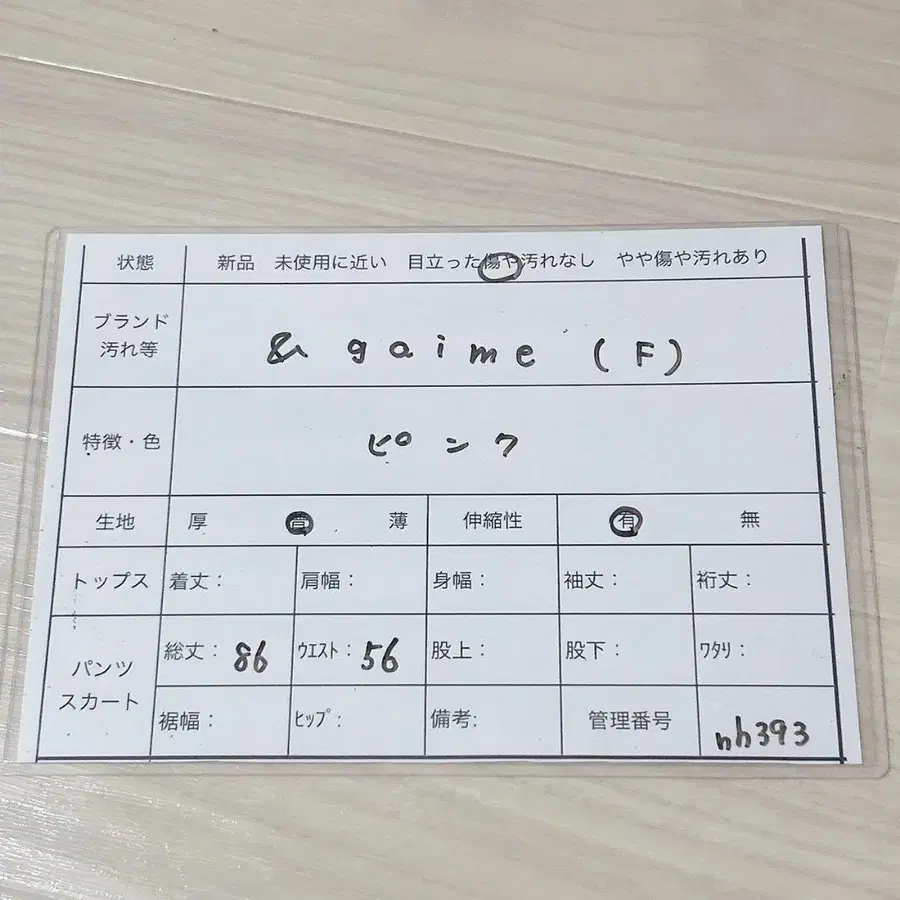 状態 新品 未使用に近い 目立った傷や汚れなし やや傷や汚れあり
ブランド
汚れ等
& gaime (F)
特徴・色 ピンク
生地 厚 普 薄 伸縮性 有 無
トップス 着丈: 肩幅: 身幅: 袖丈: 裄丈:
パンツ
スカート
総丈: 86 ウエスト: 56 股上: 股下: ワタリ:
裾幅: ヒップ: 備考: 管理番号 nh393